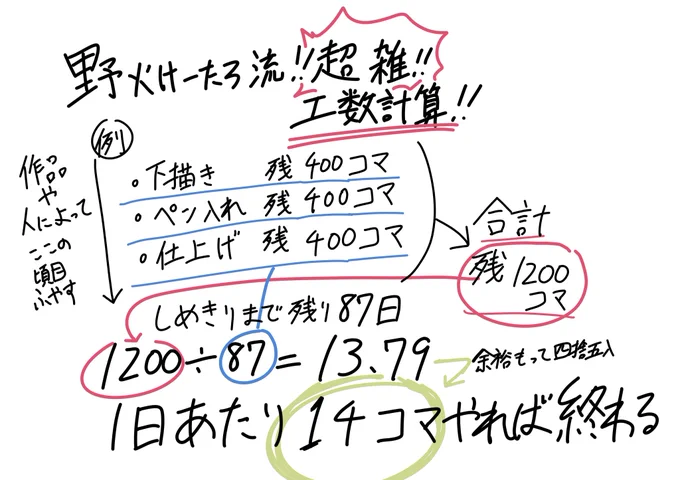 野火けーたろ流!!超雑!!
工数計算!!
例
作品
や
人によって
ここの
項目
ふやす
。下描き 残400コマ
。ペン入れ 残400コマ
。仕上げ 残400コマ
合計
残1200
コマ
しめきりまで残り87日
1200÷87=13.79
余裕もって四捨五入
1日あたり14コマやれば終わる